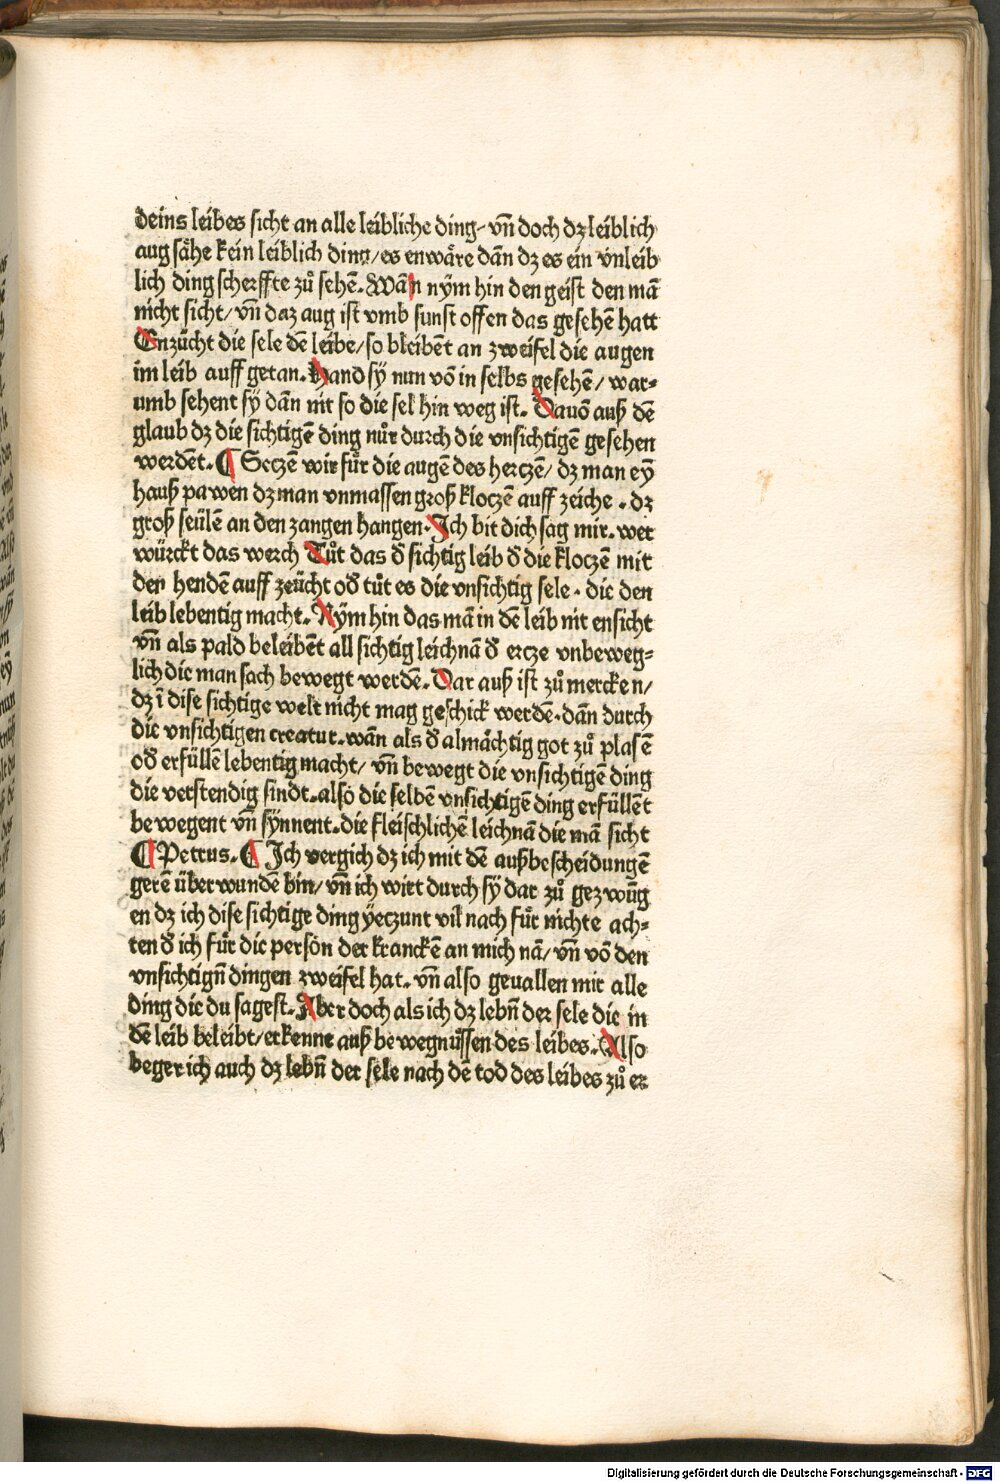 deins leibes sicht an alle leibliche ding/ vn̄ doch dz leiblich
aug sähe kein leiblich ding/ es enwäre dān dz es ein vnleib
lich ding scherffte zů sehē. Wān nÿm hin den geist den mā
nicht sicht/ vn̄ daz aug ist vmb sunst offen das gesehē hatt
Enzücht die sele dē leibe/ so bleibēt an zweifel die augen
im leib auff getan. Hand sÿ nun vō in selbs gesehē/ war⸗
umb sehent sÿ dān nit so die sel hin weg ist. Dauō auß dē
glaub dz die sichtigē ding nůr durch die vnsichtigē gesehen
werdēt. ¶ Seczē wir für die augē des herczē/ dz man eÿ
hauß pawen dz man vnmassen groß kloczē auff zeiche. dz
groß seülē an den zangen hangen. Ich bit dich sag mir. wer
würckt das werch Tůt das đ sichtig leib đ die kloczē mit
den hendē auff zeücht ođ tůt es die vnsichtig sele. die den
leib lebentig macht. Nÿm hin das mā in dē leib nit ensicht
vn̄ als pald beleibēt all sichtig leichnā đ ercze vnbeweg⸗
lich die man sach bewegt werdē. Dar auß ist zů mercken/
dz ī dise sichtige welt nicht mag geschick werdē. dān durch
die vnsichtigen creatur. wān als đ almächtig got zů plasē
ođ erfüllē lebentig macht/ vn̄ bewegt die vnsichtigē ding
die verstendig sindt. also die selbē vnsichtigē ding erfüllēt
bewegent vn̄ sÿnnent. die fleischlichē leichnā die mā sicht
¶ Petrus. ¶ Ich vergich dz ich mit dē außbescheidungē
gerē überwundē bin/ vn̄ ich wirt durch sÿ dar zů gezwūg
en dz ich dise sichtige ding ÿeczunt vil nach für nichte ach⸗
ten đ ich für die persōn der kranckē an mich nā/ vn̄ vō den
vnsichtign̄ dingen zweifel hat. vn̄ also geuallen mir alle
ding die du sagest. Aber doch als ich dz lebn̄ der sele die in
dē leib beleibt/ erkenne auß bewegnüssen des leibes. Also
beger ich auch dz lebn̄ der sele nach dē tod des leibes zů er
Digitalisierung gefördert durch die Deutsche Forschungsgemeinschaft - DFG